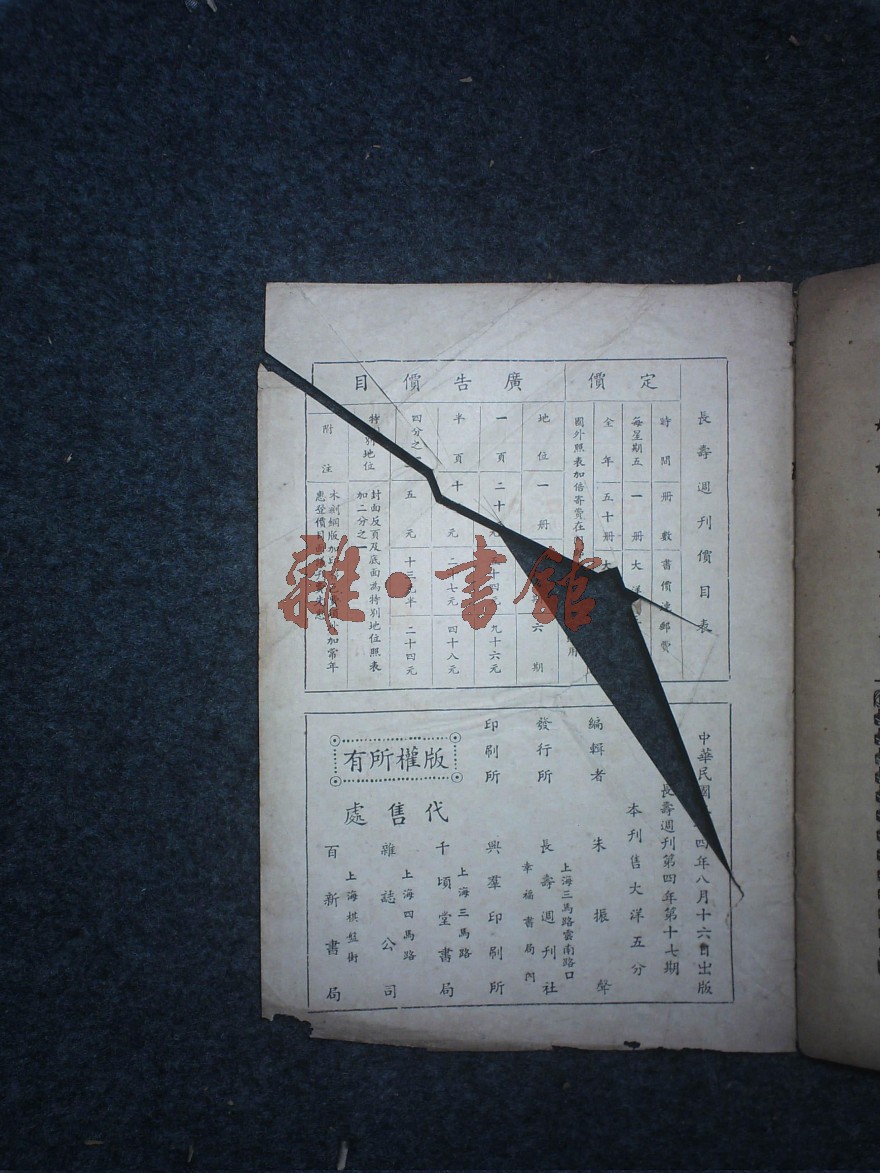 長壽週刊價目表
定價
時間 冊數 書價連郵費
每星期五 一冊 大洋
全年 五十冊 大
國外照表加倍寄費在內
廣告價目
地位 一冊 六期
一頁 二十 九十六元
半頁 十 元 二 七元 四十八元
四分之一 五元 十三元半 二十四元
特別地位 封面反頁及底面為特別地位照表加二分之一
附注 木刻銅版加 加常年惠登價目
中華民國 四年八月十六日出版
長壽週刊第四年第十七期
本刊售大洋五分
編輯者 朱振聲
上海三馬路雲南路口
發行所 長壽週刊社
幸福書局內
印刷所 興羣印刷所
版權所有
代售處
上海三馬路
千頃堂書局
上海四馬路
雜誌公司
上海棋盤街
百新書局
雜·書館